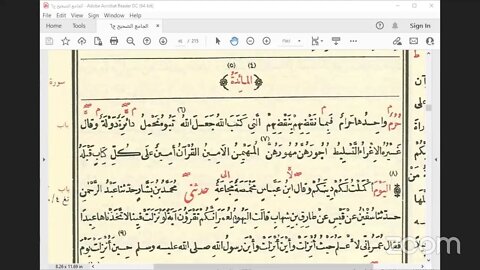 الجامع الصحيح ج٦ - Adobe Acrobat Reader DC (64-bit)
Sign In
(٤) (٥)
﴿المائدة﴾
حُرُمٌ واحدها حرام فبما نقضهم بنقضهم التي كتب الله جعل الله تبوء تحمل دائرة دولة وقال
غيره الإغراء التسليط أجورهن مهورهن المهيمن الأمين القرآن أمين على كل كتاب قبله
اليوم أكملت لكم دينكم وقال ابن عباس مخمصة مجاعة حدثني محمد بن بشار حدثنا عبد الرحمن
حدثنا سفين عن قيس عن طارق بن شهاب قالت اليهود لعمر إنكم تقرؤن آية لو نزلت فينا لاتخذناها عيدا
فقال عمر إني لأعلم حيث أنزلت وأين أنزلت وأين رسول الله صلى الله عليه وسلم حين أنزلت يوم
سورة
باب
باب
8.28 x 11.69 in
zoom